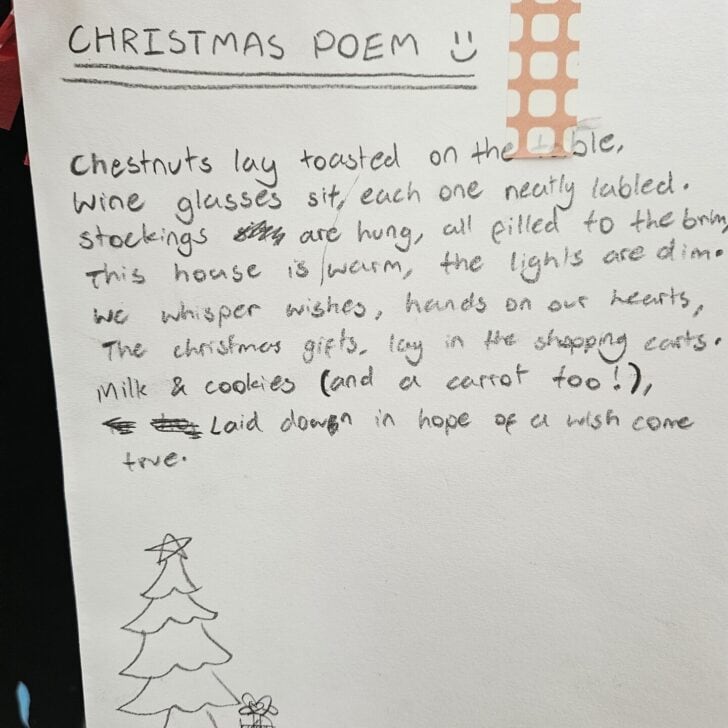 CHRISTMAS POEM
Chestnuts lay toasted on the table,
Wine glasses sit, each one neatly labled.
Stockings are hung, all filled to the brim,
This house is warm, the lights are dim.
We whisper wishes, hands on our hearts,
The christmas gifts, lay in the shopping carts.
Milk & cookies (and a carrot too!),
Laid down in hope of a wish come
true.